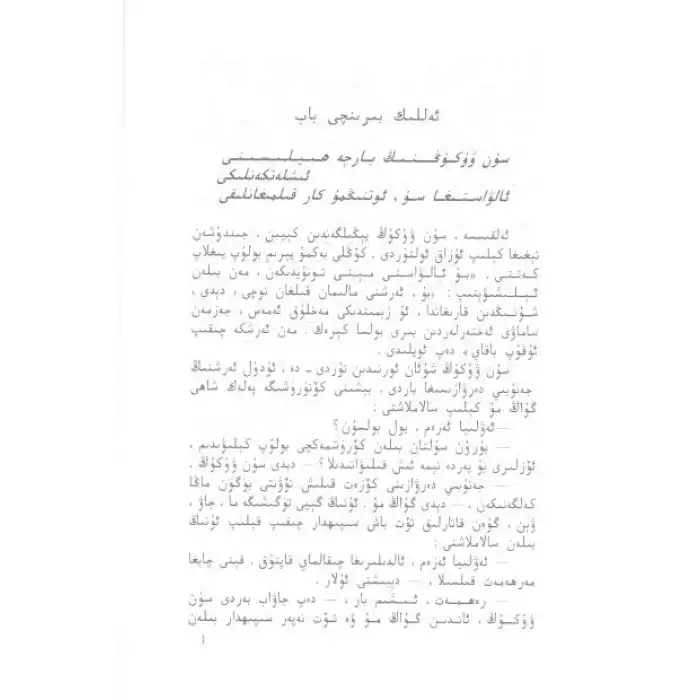 ئەللىك بىرىنچى باب
سۇن ۋۇكۇڭنىڭ بارچە ھىيلىسىنى
ئىشلەتكەنلىكى
ئالۋاستىغا سۇ، ئوتنىڭمۇ كار قىلمىغانلىقى
ئەلقىسسە، سۇن ۋۇكۇڭ يېڭىلگەندىن كېيىن، جىندۇشەن
تېغىغا كېلىپ ئۇزاق ئولتۇردى. كۆڭلى بەكمۇ يېرىم بولۇپ يىغلاپ
كەتتى. «بۇ ئالۋاستى مېنى تونۇيدىكەن، مەن بىلەن
ئېلىشىۋېتىپ: ‹بۇ، ئەرشنى مالىمان قىلغان نوچى، دېدى،
شۇنىڭدىن قارىغاندا، ئۇ زېمىندىكى مەخلۇق ئەمەس، جەزمەن
ساماۋى ئەختەرلەردىن بىرى بولسا كېرەك. مەن ئەرشكە چىقىپ
ئۇقۇپ باقاي» دەپ ئويلىدى.
سۇن ۋۇكۇڭ شۇئان ئورنىدىن تۇردى ـ دە، ئۇدۇل ئەرشنىڭ
جەنۇبىي دەرۋازىسىغا باردى. بېشىنى كۆتۈرۈشىگە پەلەك شاھى
گۇاڭ مۇ كېلىپ سالاملاشتى:
—ئەۋلىيا ئەزەم، يول بولسۇن؟
— بۈرۈن سۇلتان بىلەن كۆرۈشمەكچى بولۇپ كېلىۋىدىم،
ئۆزلىرى بۇ يەردە نېمە ئىش قىلىۋاتىدىلا؟ — دېدى سۇن ۋۇكۇڭ.
— جەنۇبىي دەرۋازىنى كۆزەت قىلىش نۆۋىتى بۈگۈن ماڭا
كەلگەنىكەن، — دېدى گۇاڭ مۇ. ئۇنىڭ گېپى تۈگىشىگە ما، جاۋ،
ۋېن، گۇەن قاتارلىق تۆت باش سىپىھدار چىقىپ قېلىپ ئۇنىڭ
بىلەن سالاملاشتى:
— ئەۋلىيا ئەزەم، ئالدىلىرىغا چىقالماي قاپتۇق. قېنى چايغا
مەرھەمەت قىلسىلا، — دېيىشتى ئۇلار.
— رەھمەت، ئىشىم بار، — دەپ جاۋاب بەردى سۇن
ۋۇكۇڭ. ئاندىن گۇاڭ مۇ ۋە تۆت نەپەر سىپىھدار بىلەن
1